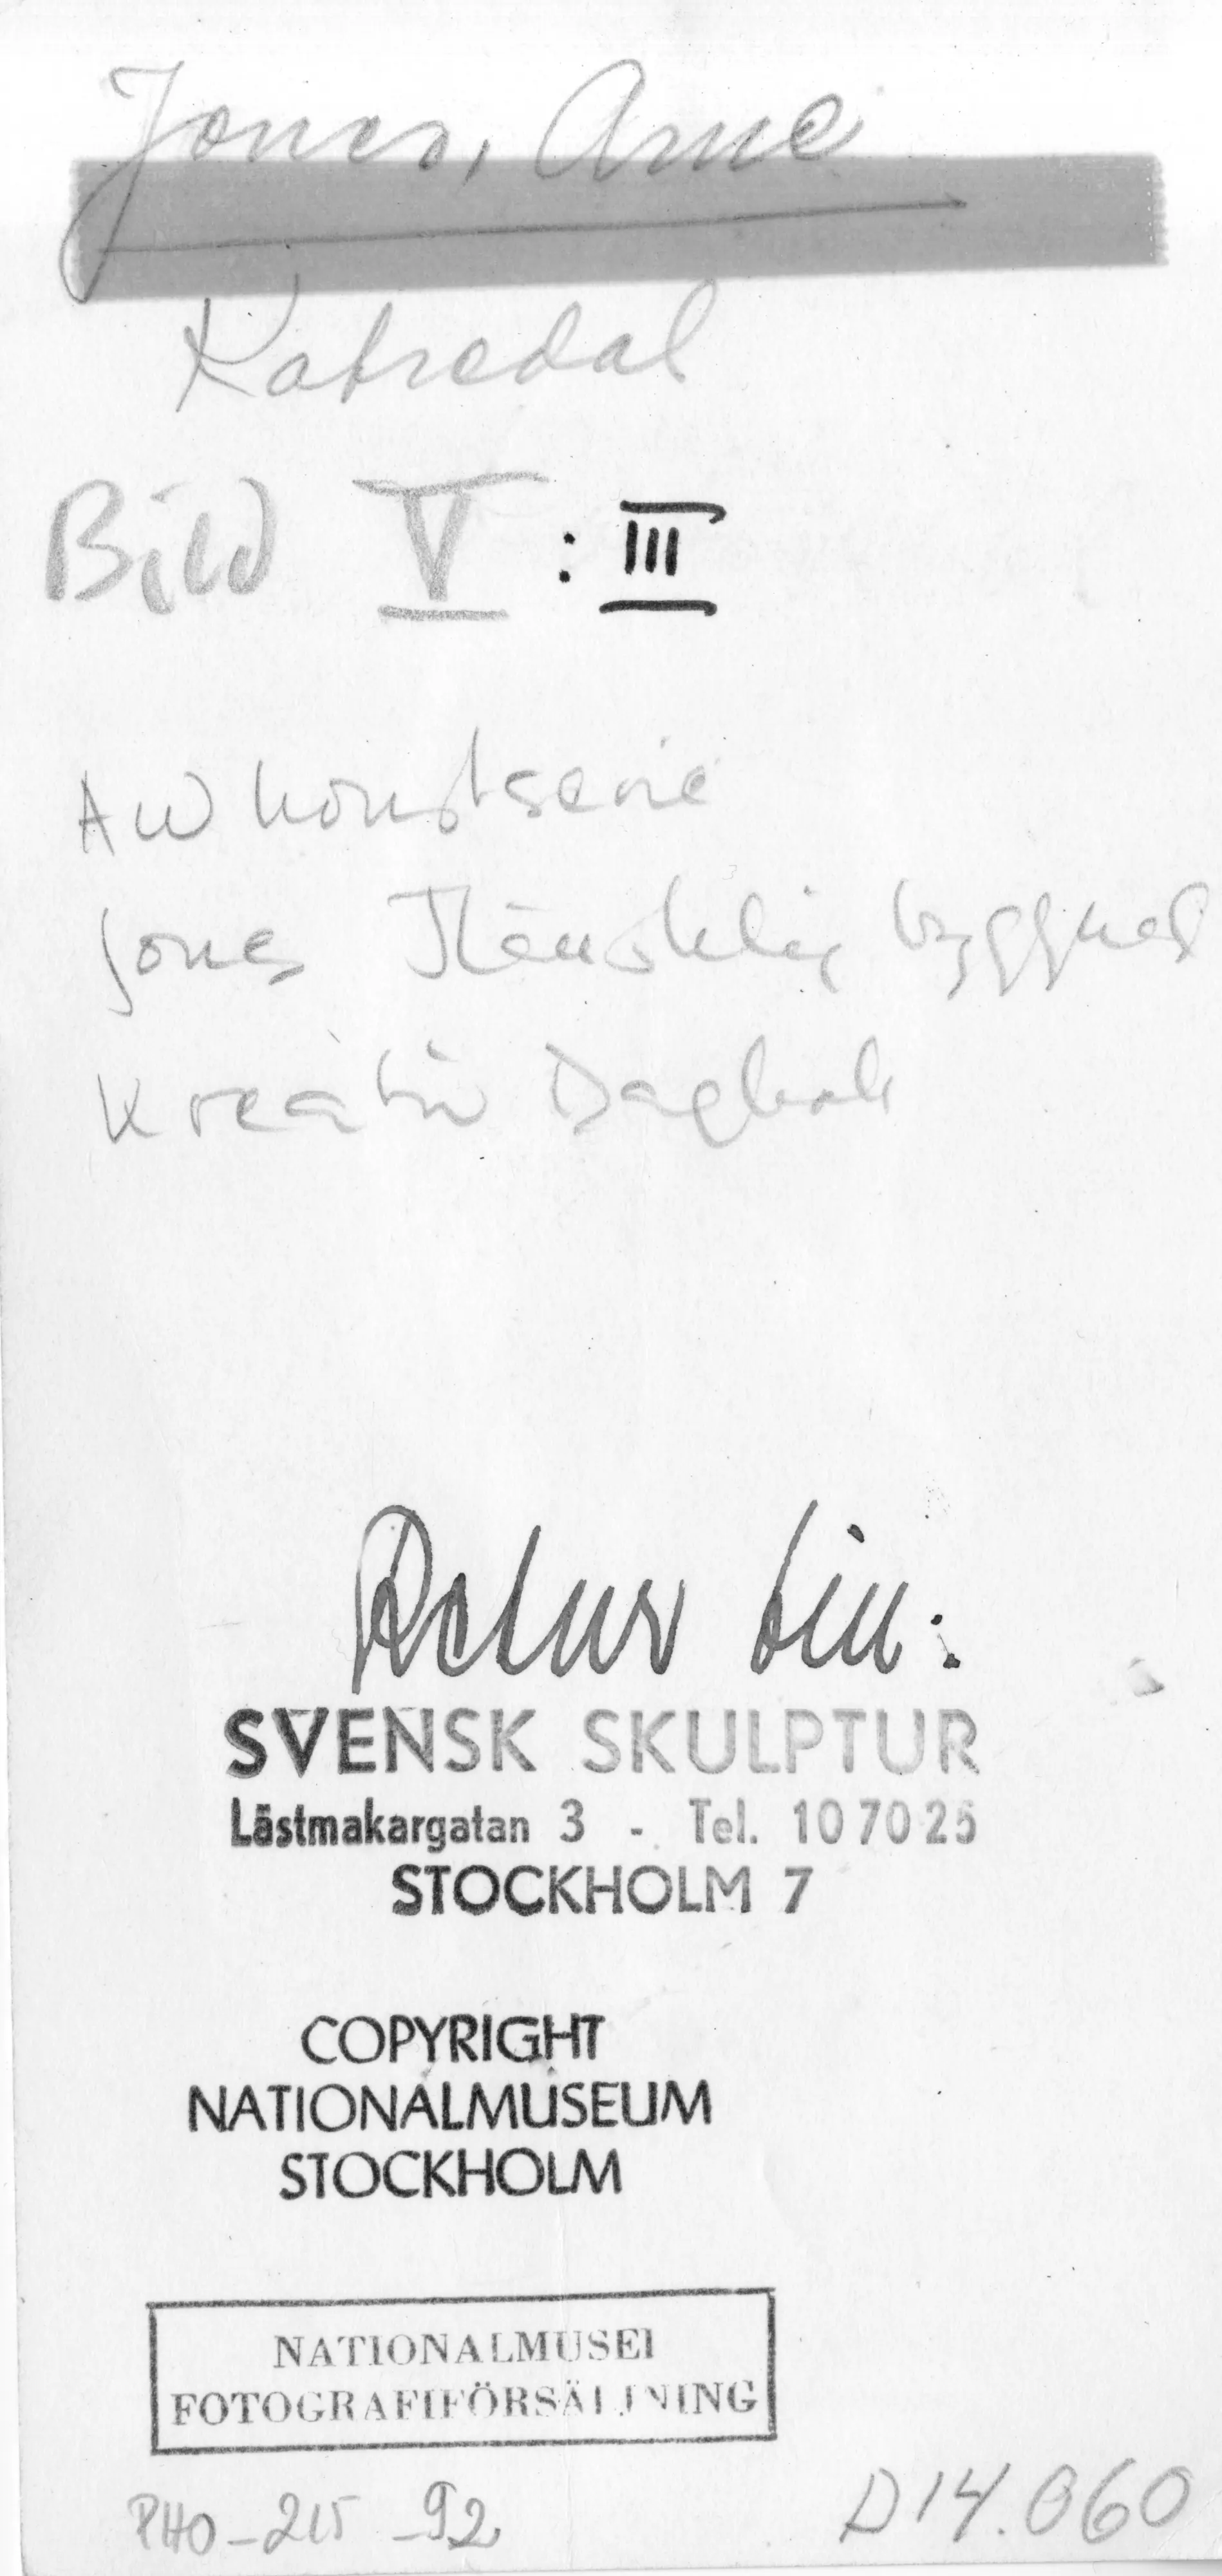 Jones, Arne
Katredal
Bild V : III
AW konstserie
Jones Mänsklig byggnad
Kreativ Dagbok
Retur till:
SVENSK SKULPTUR
Lästmakargatan 3 - Tel. 10 70 25
STOCKHOLM 7
COPYRIGHT
NATIONALMUSEUM
STOCKHOLM
NATIONALMUSEI
FOTOGRAFIFÖRSÄLJNING
PHO-215-92
D14.060